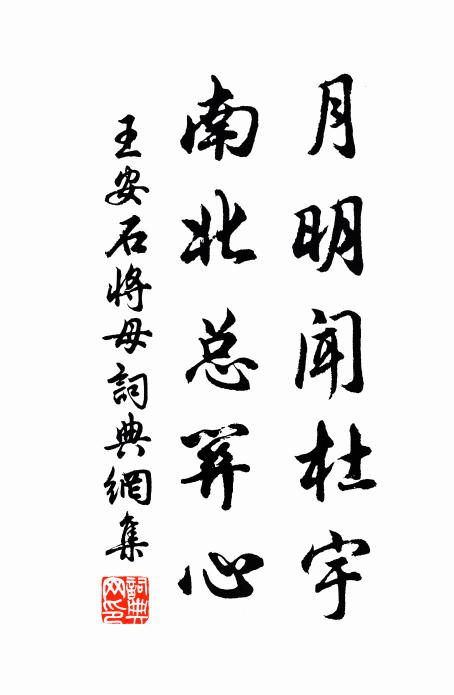 月明闻杜宇
南北总关心
王安石将母詞典網集
詞典网印